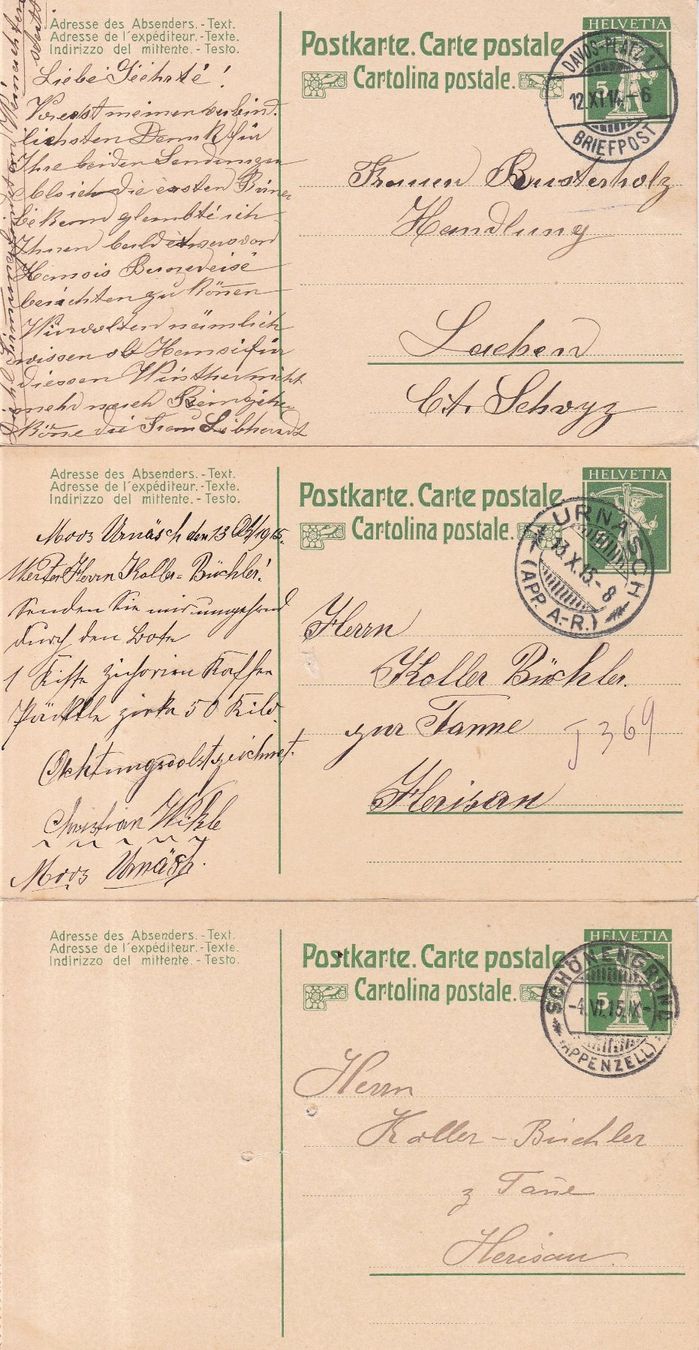 Adresse des Absenders. - Text.
Adresse de l'expéditeur. - Texte.
Indirizzo del mittente. - Testo.
Postkarte. Carte postale.
Cartolina postale.
HELVETIA
5
DAVOS-PLATZ 1
12.XI.14.-6
BRIEFPOST
Liebe Geehrte!
Vorerst meinen verbind
lichsten Dank für
Ihre beiden Sendungen
als ich die ersten Birne
bekam glaubte ich
Ihnen bald etwas von
berichten zu können
Wir wolten nämlich
wissen ob Hansi für
diessen Winther nicht
mehr nach
Könne die Frau
Frauen Busterholz
Handlung
Lachen
Ct. Schvyz
Adresse des Absenders. - Text.
Adresse de l'expéditeur. - Texte.
Indirizzo del mittente. - Testo.
Postkarte. Carte postale.
Cartolina postale.
HELVETIA
URNÄSCH
13.X.15.-8
(APP. A.-R.)
Moos Urnäsch den 13 Okt 1915.
Werter Herrn Koller-Büchler!
Senden Sie mir umgehend
durch den Bote
1 Kiste zichorien Kaffee
Päckle zirka 50 Kilo.
Achtungsvolst zeichnet.
Christian Wikle
Moos Urnäsch.
Herrn
Koller Büchler.
zur Tanne
Herisau
J 369
Adresse des Absenders. - Text.
Adresse de l'expéditeur. - Texte.
Indirizzo del mittente. - Testo.
Postkarte. Carte postale.
Cartolina postale.
HELVETIA
5
SCHÖNENGRUND
-4.VI.15.IX-
(APPENZELL)
Herrn
Koller-Büchler
z Tane
Herisau.